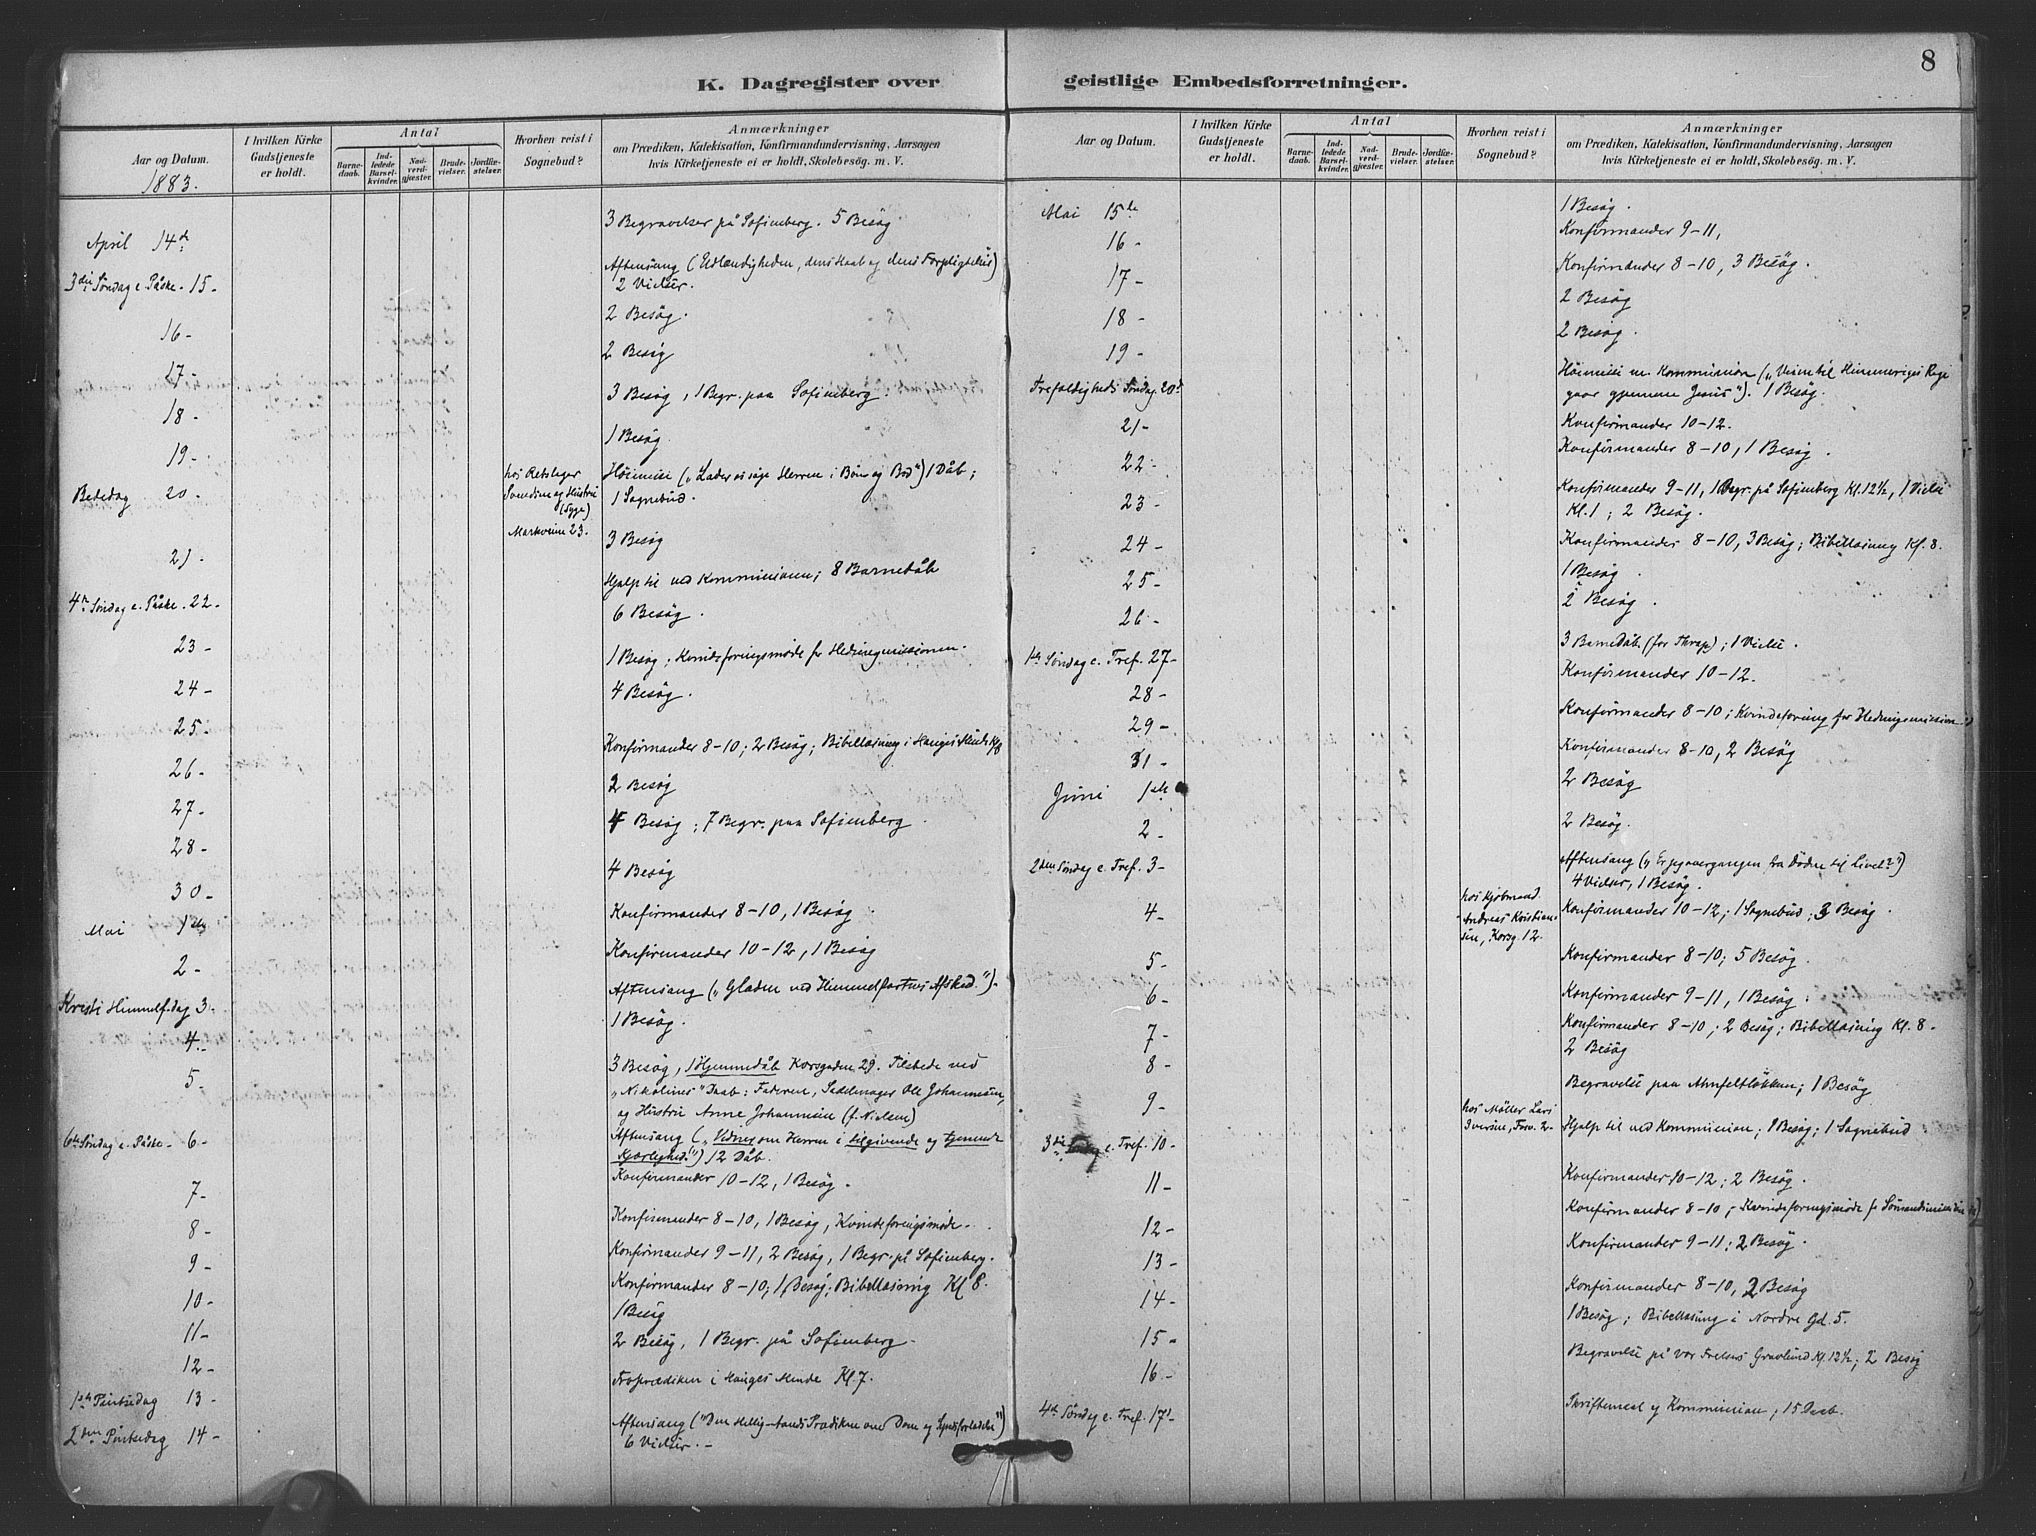 8
K. Dagregister over geistlige Embedsforretninger.
Aar og Datum.
I hvilken Kirke Gudstjeneste er holdt.
Antal
Barnedaab.
Indledede Barselkvinder.
Nadverdgjæster.
Brudevielser.
Jordfæstelser.
Hvorhen reist i Sognebud?
Anmærkninger
om Prædiken, Katekisation, Konfirmandundervisning, Aarsagen
hvis Kirketjeneste ei er holdt, Skolebesøg. m. V.
1883.
April 14d 3 Begravelser på Sofienberg. 5 Besøg
3die Søndag e. Påske. 15- Aftensang (Udlændigheden, dens Haab og dens Forpligtelse)
2 Vielser.
16- 2 Besøg.
17- 2 Besøg
18- 3 Besøg, 1 Begr. paa Sofienberg.
19- 1 Besøg.
Bededag 20- hos Retsleger
og Hustru
(Syge)
Markveien 23.
Høimesse („Lader os søge Herren i Bøn og Bod“) 1 Dåb;
1 Sognebud.
21- 3 Besøg
4de Søndag e. Påske. 22- Hjælp til ved Kommunionen; 8 Barnedåb
6 Besøg.
23- 1 Besøg; Kvindeforeningsmøde for Hedningemissionen.
24- 4 Besøg.
25- Konfirmander 8-10; 2 Besøg; Bibellæsning i Hauges Minde Kl 8
26- 2 Besøg
27- 4 Besøg; 7 Begr. paa Sofienberg.
28- 4 Besøg
30- Konfirmander 8-10, 1 Besøg
Mai 1ste Konfirmander 10-12, 1 Besøg
2- Aftensang („Glæden ved Himmelfartens Afsked.“)-
Kristi Himmelf.dag 3- 1 Besøg.
4-
5- 3 Besøg, 1 Hjemmedåb Korsgaden 29. Tilstede ved
„Nikolines“ Daab: Faderen, Sadelmager Ole Johannesen,
og Hustru Anne Johannesen (f. Nielsen)
6te Søndag e. Påske- 6- Aftensang („Vidner om Herren i tilgivende og tjenende
Kjærlighed.“) 12 Dåb.
7- Konfirmander 10-12, 1 Besøg.
8- Konfirmander 8-10, 1 Besøg, Kvindeforeningsmøde.
9- Konfirmander 9-11, 2 Besøg, 1 Begr. på Sofienberg.
10- Konfirmander 8-10; 1 Besøg; Bibellæsning Kl 8.
11- 1 Besøg
12- 2 Besøg, 1 Begr. på Sofienberg.
1ste Pintsedag 13- Froprædiken i Hauges Minde Kl. 7.
2den Pintsedag 14- Aftensang („Den Hellig-Aands Prædiken om Dom og Syndsforladelse“)
6 Vielser.-
Aar og Datum.
I hvilken Kirke Gudstjeneste er holdt.
Antal
Barnedaab.
Indledede Barselkvinder.
Nadverdgjæster.
Brudevielser.
Jordfæstelser.
Hvorhen reist i Sognebud?
Anmærkninger
om Prædiken, Katekisation, Konfirmandundervisning, Aarsagen
hvis Kirketjeneste ei er holdt, Skolebesøg. m. V.
Mai 15de 1 Besøg.
16- Konfirmander 9-11,
17- Konfirmander 8-10, 3 Besøg.
18- 2 Besøg
19- 2 Besøg.
Trefoldigheds Søndag 20d Høimesse m. Kommunion („Veien til Himmeriges Rige
gaar gjennem Jesus“). 1 Besøg.
21- Konfirmander 10-12.
22- Konfirmander 8-10, 1 Besøg.
23- Konfirmander 9-11, 1 Begr. på Sofienberg Kl. 12½, 1 Vielse
Kl. 1; 2 Besøg.
24- Konfirmander 8-10, 3 Besøg; Bibellæsning Kl. 8.
25- 1 Besøg.
26- 2 Besøg.
1ste Søndag e. Tref. 27- 3 Barnedåb (for Thrap); 1 Vielse.
28- Konfirmander 10-12.
29- Konfirmander 8-10; Kvindeforening for Hedningemissionen
31- Konfirmander 8-10, 2 Besøg
Juni 1ste 2 Besøg
2- 2 Besøg.
2den Søndag e. Tref. 3- Aftensang („Er jeg overgangen fra Døden til Livet?“)
4 Vielser, 1 Besøg.
4- hos Kjøbmand
Andreas Kristiansen, Korsg. 12.
Konfirmander 10-12; 1 Sognebud; 3 Besøg.
5- Konfirmander 8-10; 5 Besøg.
6- Konfirmander 9-11, 1 Besøg.
7- Konfirmander 8-10; 2 Besøg; Bibellæsning Kl. 8-
8- 2 Besøg
9- Begravelse paa Ahnfeltløkken; 1 Besøg
3die Søndag e. Tref. 10- hos Møller Lars
Iversen, Fosv. 2-
Hjælp til ved Kommunion; 1 Besøg; 1 Sognebud
11- Konfirmander 10-12; 2 Besøg.
12- Konfirmander 8-10,- Kvindeforeningsmøde for Sømandsmissionen
13- Konfirmander 9-11; 2 Besøg.
14- Konfirmander 8-10, 2 Besøg
15- 1 Besøg; Bibellæsning i Nordre Gd. 5.
16- Begravelse på Vor Frelsers Gravlund Kl. 12½; 2 Besøg
4de Søndag e. Tref. 17d- Skriftemaal og Kommunion; 15 Daab.